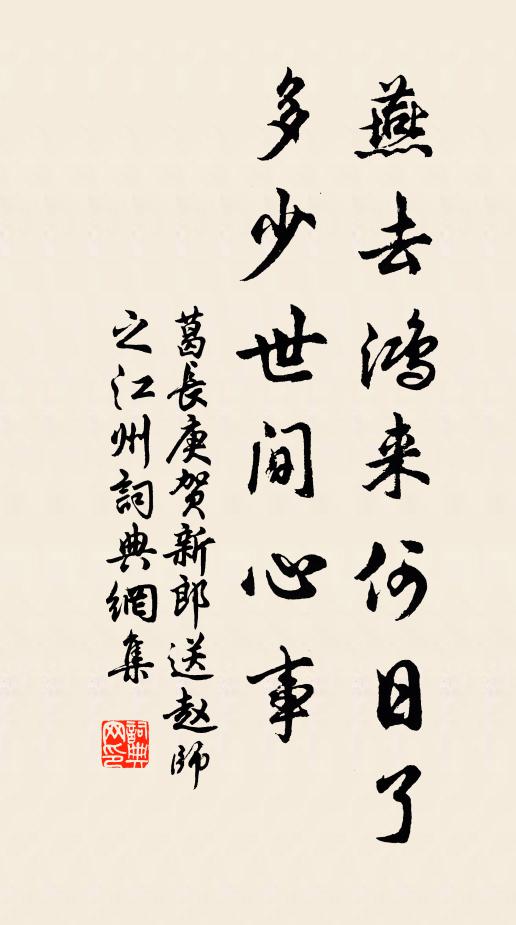 燕去鸿来何日了
多少世间心事
葛長庚贺新郎送赵師
之江州詞典網集
詞典
网印